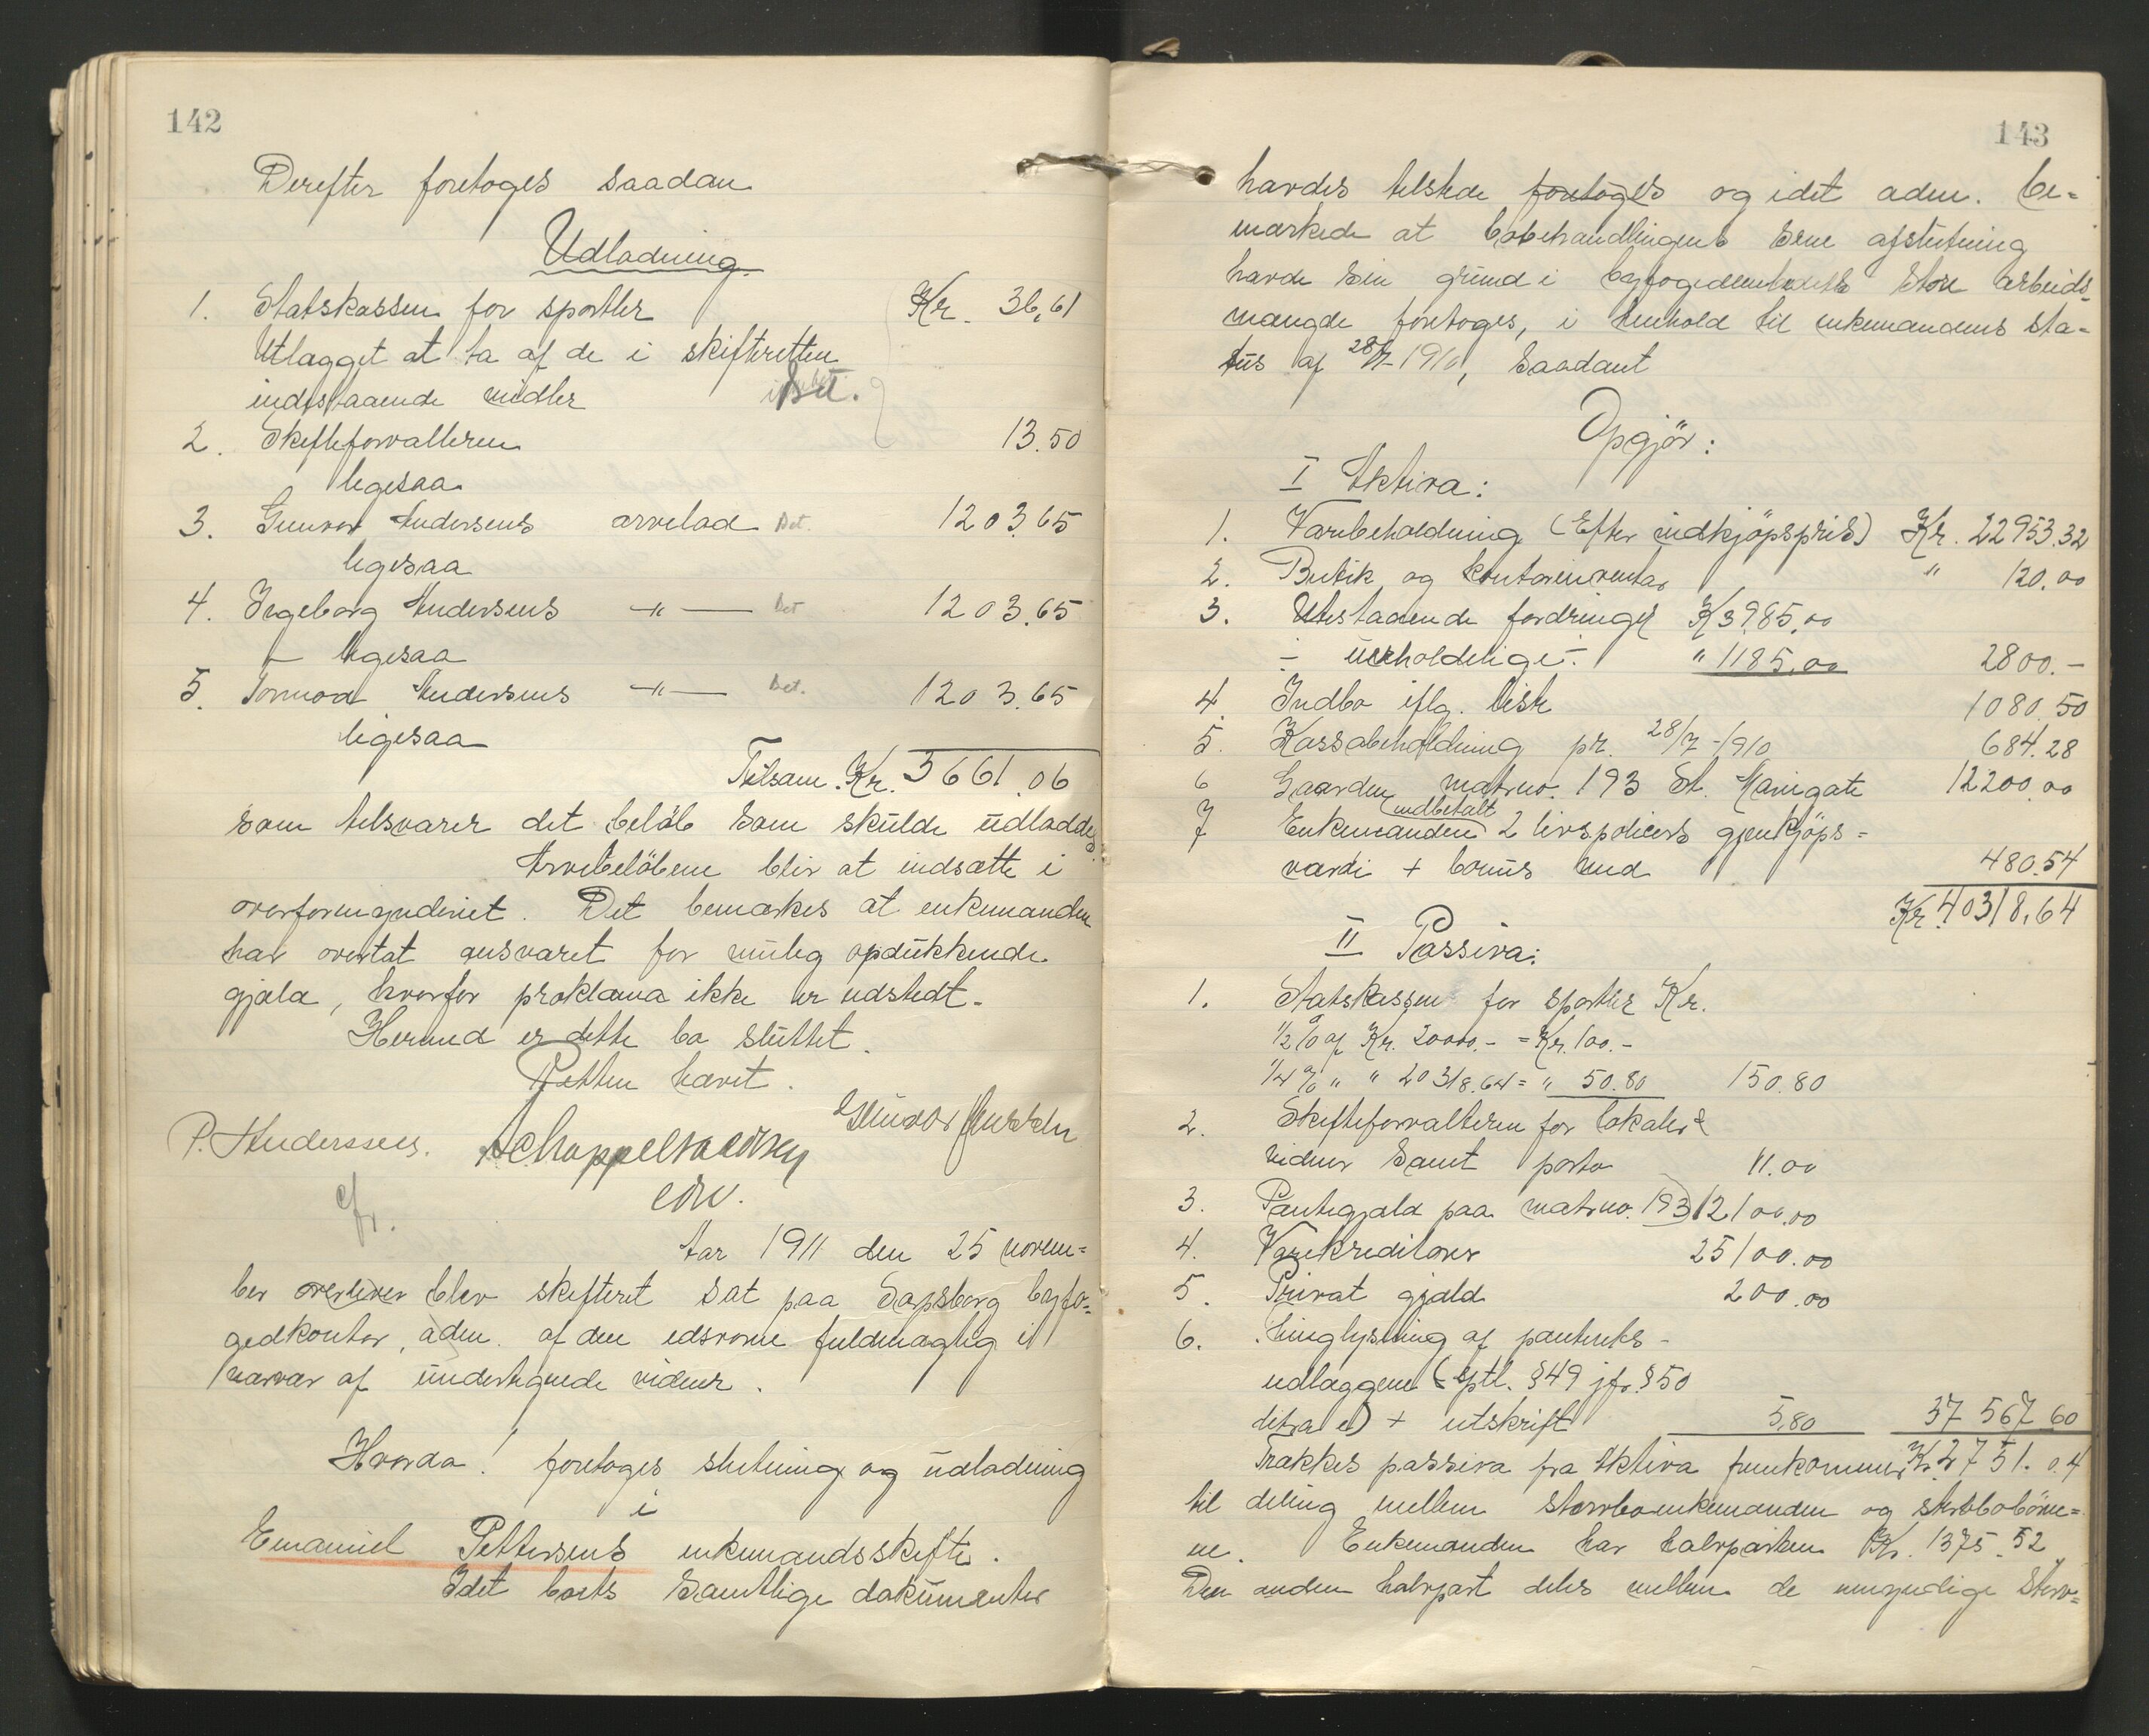 142
Derefter foretoges saadan
Udlodning.
1. Statskassen for sportler Kr. 36,61
Utlægget at ta af de i skifteretten
indestaaende midler Bet.
2. Skifteforvalteren 13.50
ligesaa
3. Gunvor Andersens arvelod Bet. 1203.65
ligesaa
4. Ingeborg Andersens —"— Bet 1203.65
— ligesaa
5. Tormod Andersens —"— Bet. 1203.65
ligesaa
Tilsam. Kr. 3661.06
som tilsvarer det beløb som skulde udloddes.
Arvebeløbene blir at indsætte i
overformynderiet. Det bemerkes at enkemanden
har overtat ansvaret for mulig opdukkende
gjæld, hvorfor proklama ikke er udstedt.
Hermed er dette bo sluttet.
Retten hævet.
P. Anderssen.
edv.
Aar 1911 den 25 novem=
ber overliver blev skifteret sat paa Sarpsborg byfo=
gedkontor, adm. af den edsvorne fuldmægtig i
nærvær af undertegnede vidner.
Hvorda! foretoges slutning og udlodning
i
Emanuel Pettersens enkemandsskifte.
Idet boets samtlige dokumenter
143
havdes tilstede foretoges og idet adm. be=
mærkede at bobehandlingens sene afslutning
havde sin grund i byfogedembedets store arbeids=
mængde foretoges, i henhold til enkemandens sta=
tus af 28/7-1910, saadant
Opgjör:
I Aktiva:
1. Varebeholdning (Efter indkjöpspris) Kr. 22953.32
2. Butik og kontorinventar " 120.00
3. Utestaaende fordringer K 3985.00
÷ uerholdelige ÷ " 1185.00 2800.-
4. Indbo iflg. liste 1080.50
5. Kassabeholdning pr. 28/7-1910 684.28
6 Gaarden matrno. 193 St. Mariegate 12200.00
indbetalt
7 Enkemanden 2 livspolicers gjenkjöps=
værdi + bonus med 480.54
Kr. 40318,64
II Passiva:
1. Statskassen for sportler Kr.
1/2 % af Kr. 20000.- = Kr. 100.-
1/4 % " " 20318.64 = " 50.80 150.80
2. Skifteforvalteren for lokaler &
vidner samt porto 11.00
3. Pantegjæld paa matrno. 193 12100.00
4. Varekreditorer 25100.00
5. Privat gjæld 200.00
6. Tinglysning af panterets-
udlæggene (sptl. §49 jfr. §50
litra e) + utskrift 5,80 37 567 60
Trækkes passiva fra Aktiva fremkommer Kr. 2751.04
til deling mellem stervboenkemanden og stervbobörne=
ne. Enkemanden har halvparten Kr. 1375.52
Den anden halvpart deles mellem de umyndige sterv=